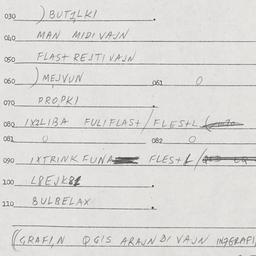 030 ) BUTƖLKI .
040 MAN MIDI VAJN
050 FLAS+ REJTI VAJN
060 ) MEJVUN 061 0
070 PROPKI .
080 1X1LIBA FULIFLAS+ / FLES+L
081 0 082 0
090 1XTRINK FUNA FLES+L /
100 LBEJK .
110 BULBELAX .
((GRAFI,N QGIS ARAJN DI VAJN